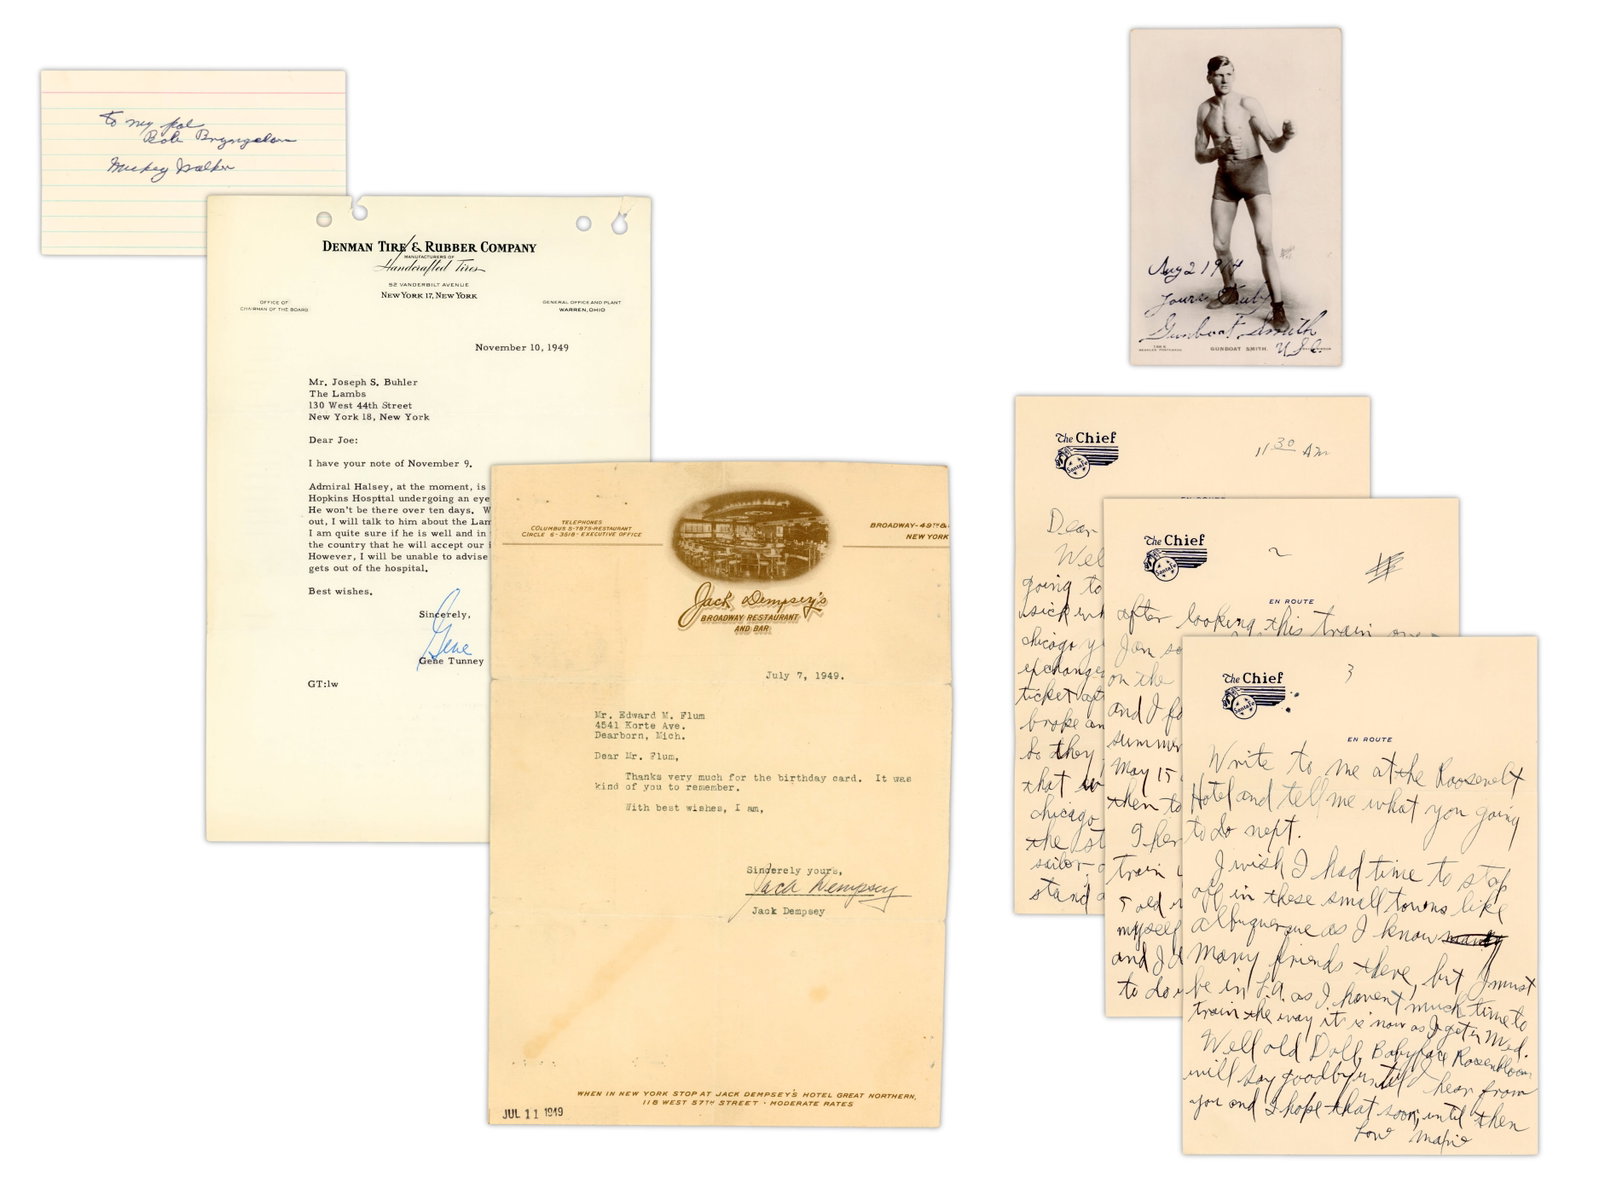 to my pal
Bob Bryngelson
Mickey Walker
DENMAN TIRE & RUBBER COMPANY
MANUFACTURERS OF
Handcrafted Tires
52 VANDERBILT AVENUE
NEW YORK 17, NEW YORK
OFFICE OF
CHAIRMAN OF THE BOARD
GENERAL OFFICE AND PLANT
WARREN, OHIO
November 10, 1949
Mr. Joseph S. Buhler
The Lambs
130 West 44th Street
New York 18, New York
Dear Joe:
I have your note of November 9.
Admiral Halsey, at the moment, is
Hopkins Hospital undergoing an eye
He won't be there over ten days. W
out, I will talk to him about the Lam
I am quite sure if he is well and in
the country that he will accept our i
However, I will be unable to advise
gets out of the hospital.
Best wishes.
Sincerely,
Gene
Gene Tunney
GT:lw
TELEPHONES
COLUMBUS 5-7875-RESTAURANT
CIRCLE 6-3518-EXECUTIVE OFFICE
BROADWAY-49TH &
NEW YORK
Jack Dempsey's
BROADWAY RESTAURANT
AND BAR
July 7, 1949.
Mr. Edward M. Flum
4541 Korte Ave.
Dearborn, Mich.
Dear Mr. Flum,
Thanks very much for the birthday card. It was
kind of you to remember.
With best wishes, I am,
Sincerely yours,
Jack Dempsey
Jack Dempsey
WHEN IN NEW YORK STOP AT JACK DEMPSEY'S HOTEL GREAT NORTHERN,
118 WEST 57TH STREET · MODERATE RATES
JUL 11 1949
Aug 2 1914
Yours Truly
Gunboat Smith
U.S.A.
BEAGLES POSTCARDS
GUNBOAT SMITH.
The Chief
Santa Fe
11 30 AM
EN ROUTE
Dear
Wel
going to
sick wh
chicago y
exchange
ticket aft
broke an
so they
that w
chicago
the st
sailor
stand a
The Chief
Santa Fe
2
EN ROUTE
after looking this train over
Jan so
on the
and I fo
summer
May 15
then to
I her
train
5 old
myself
and I d
to do
The Chief
Santa Fe
3
EN ROUTE
Write to me at the Roosevelt
Hotel and tell me what you going
to do next.
I wish I had time to stop
off in these small towns like
albuquerque as I know
many friends there, but I must
be in L.A. as I havent much time to
train the way it is now as I get in Wed.
Well old Doll, Babyface Rosenbloom
will say goodby until I hear from
you and I hope that soon, until then
Love Maxie